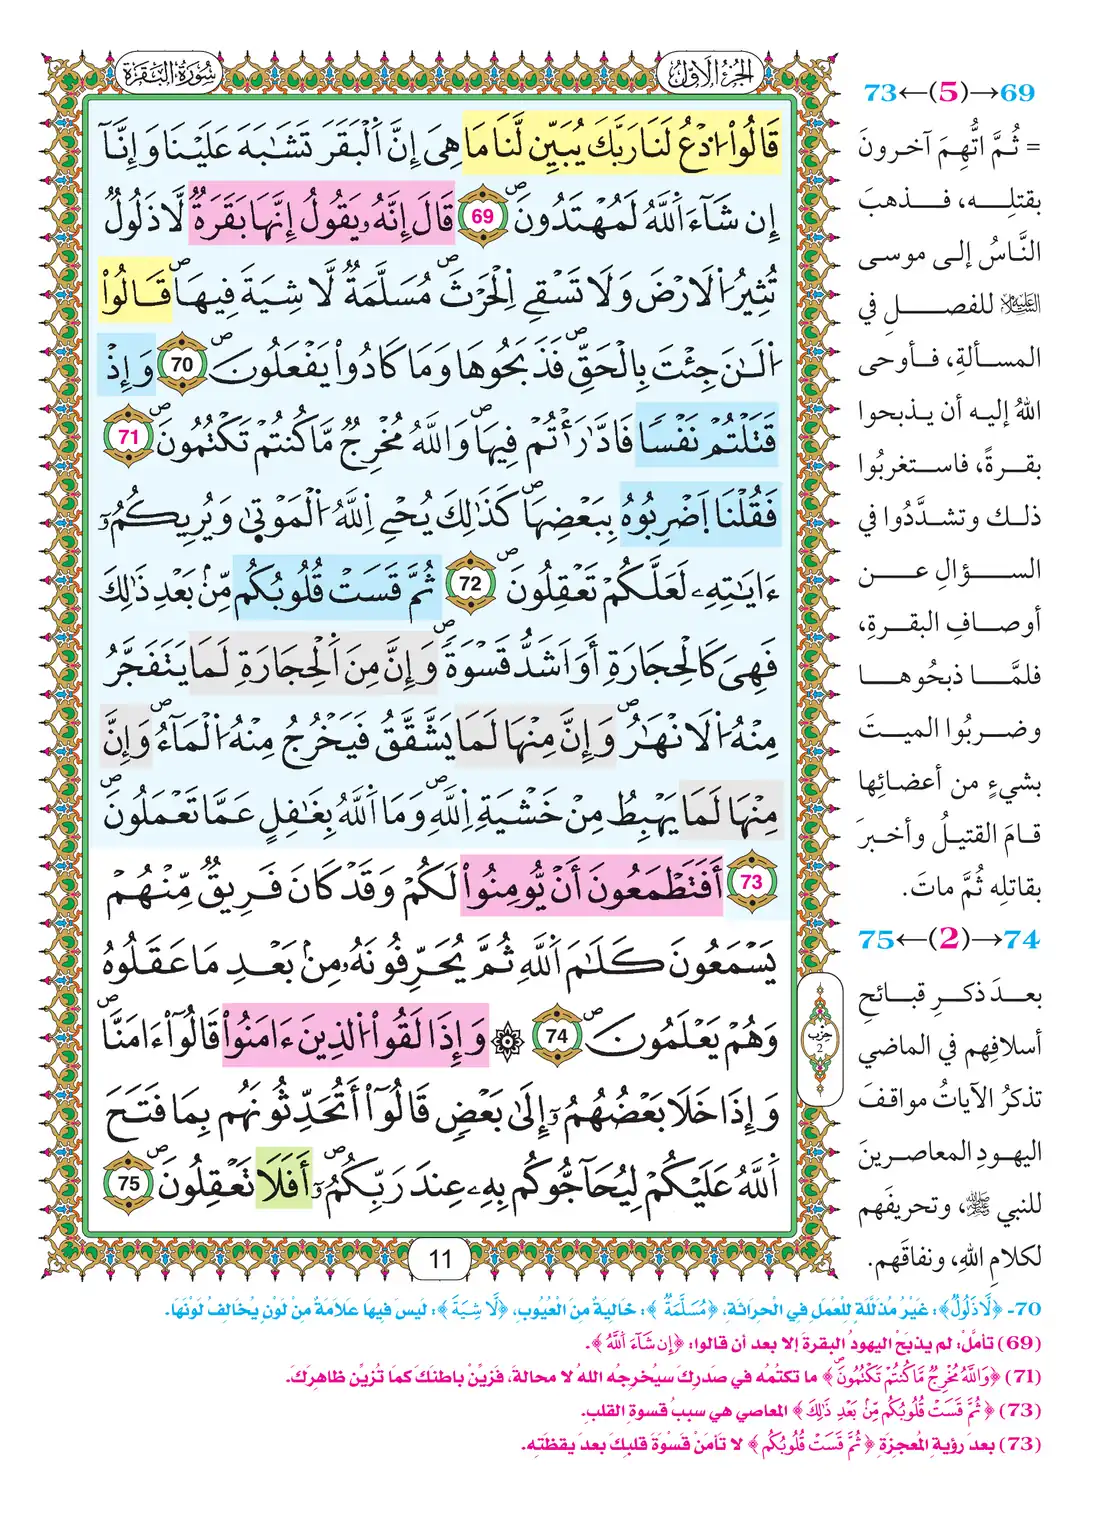 الجُزْءُ الاَوَّلُ
سُورَةُ البَقَرَةِ
قَالُواْ اُدْعُ لَنَا رَبَّكَ يُبَيِّن لَّنَا مَا هِيَ إِنَّ اَلْبَقَرَ تَشَٰبَهَ عَلَيْنَا وَإِنَّآ
إِن شَآءَ اَللَّهُ لَمُهْتَدُونَۖ 69 قَالَ إِنَّهُۥ يَقُولُ إِنَّهَا بَقَرَةٞ لَّا ذَلُولٞ
تُثِيرُ اُلَارْضَ وَلَا تَسْقِے اِلْحَرْثَۖ مُسَلَّمَةٞ لَّا شِيَةَ فِيهَاۖ قَالُواْ
اُلَٰنَ جِئْتَ بِالْحَقِّۖ فَذَبَحُوهَا وَمَا كَادُواْ يَفْعَلُونَۖ 70 وَإِذْ
قَتَلْتُمْ نَفْسٗا فَادَّٰرَٰٔتُمْ فِيهَاۖ وَاللَّهُ مُخْرِجٞ مَّا كُنتُمْ تَكْتُمُونَۖ 71
فَقُلْنَا اَضْرِبُوهُ بِبَعْضِهَاۖ كَذَٰلِكَ يُحْيِ اِللَّهُ اُلْمَوْتۭيٰ وَيُرِيكُمُۥٓ
ءَايَٰتِهِۦ لَعَلَّكُمْ تَعْقِلُونَۖ 72 ثُمَّ قَسَتْ قُلُوبُكُم مِّنۢ بَعْدِ ذَٰلِكَ
فَهِيَ كَالْحِجَارَةِ أَوَ اَشَدُّ قَسْوَةٗۖ وَإِنَّ مِنَ اَلْحِجَارَةِ لَمَا يَتَفَجَّرُ
مِنْهُ اُلَانْهَٰرُۖ وَإِنَّ مِنْهَا لَمَا يَشَّقَّقُ فَيَخْرُجُ مِنْهُ اُلْمَآءُۖ وَإِنَّ
مِنْهَا لَمَا يَهْبِطُ مِنْ خَشْيَةِ اِللَّهِۖ وَمَا اَللَّهُ بِغَٰفِلٍ عَمَّا تَعْمَلُونَۖ
73 أَفَتَطْمَعُونَ أَنْ يُّومِنُواْ لَكُمْ وَقَدْ كَانَ فَرِيقٞ مِّنْهُمْ
يَسْمَعُونَ كَلَٰمَ اَللَّهِ ثُمَّ يُحَرِّفُونَهُۥ مِنۢ بَعْدِ مَا عَقَلُوهُ
وَهُمْ يَعْلَمُونَۖ 74 ۞ وَإِذَا لَقُواْ اُلذِينَ ءَامَنُواْ قَالُوٓاْ ءَامَنَّاۖ
وَإِذَا خَلَا بَعْضُهُمُۥٓ إِلَىٰ بَعْضٖ قَالُوٓاْ أَتُحَدِّثُونَهُم بِمَا فَتَحَ
اَللَّهُ عَلَيْكُمْ لِيُحَآجُّوكُم بِهِۦ عِندَ رَبِّكُمُۥٓۖ أَفَلَا تَعْقِلُونَۖ 75
حزب
2
11
69→(5)←73
= ثُمَّ اتُّهِمَ آخرونَ
بقتلِه، فـذهبَ
النَّاسُ إلى موسى
عليه السلام للفصلِ في
المسألةِ، فأوحى
اللهُ إليه أن يذبحوا
بقرةً، فاستغربُوا
ذلك وتشدَّدُوا في
السؤالِ عن
أوصافِ البقرةِ،
فلمَّا ذبحُوها
وضربُوا الميتَ
بشيءٍ من أعضائِها
قامَ القتيلُ وأخبرَ
بقاتلِه ثُمَّ ماتَ.
74→(2)←75
بعدَ ذكرِ قبائحِ
أسلافِهم في الماضي
تذكرُ الآياتُ مواقفَ
اليهودِ المعاصرينَ
للنبي ﷺ، وتحريفَهم
لكلامِ اللهِ، ونفاقَهم.
70- ﴿لَّا ذَلُولٞ﴾: غَيْرُ مُذَلَّلَةٍ لِلْعَمَلِ فِي الْحِرَاثَةِ، ﴿مُسَلَّمَةٞ﴾: خَالِيَةٌ مِنَ الْعُيُوبِ، ﴿لَّا شِيَةَ﴾: لَيْسَ فِيهَا عَلَامَةٌ مِنْ لَوْنٍ يُخَالِفُ لَوْنَهَا.
(69) تأمَّلْ: لم يذبَحْ اليهودُ البقرةَ إلا بعد أن قالوا: ﴿إِن شَآءَ اَللَّهُ﴾.
(71) ﴿وَاللَّهُ مُخْرِجٞ مَّا كُنتُمْ تَكْتُمُونَۖ﴾ ما تكتُمُه في صَدرِكَ سيُخرِجُه اللهُ لا محالة، فَزَيِّنْ باطنَكَ كما تُزيِّن ظاهِرَكَ.
(73) ﴿ثُمَّ قَسَتْ قُلُوبُكُم مِّنۢ بَعْدِ ذَٰلِكَ﴾ المعاصي هي سببُ قسوةِ القلبِ.
(73) بعدَ رؤيةِ المُعجِزةِ ﴿ثُمَّ قَسَتْ قُلُوبُكُم﴾ لا تأمَنْ قَسْوَةَ قلبِكَ بعدَ يقظَتِه.